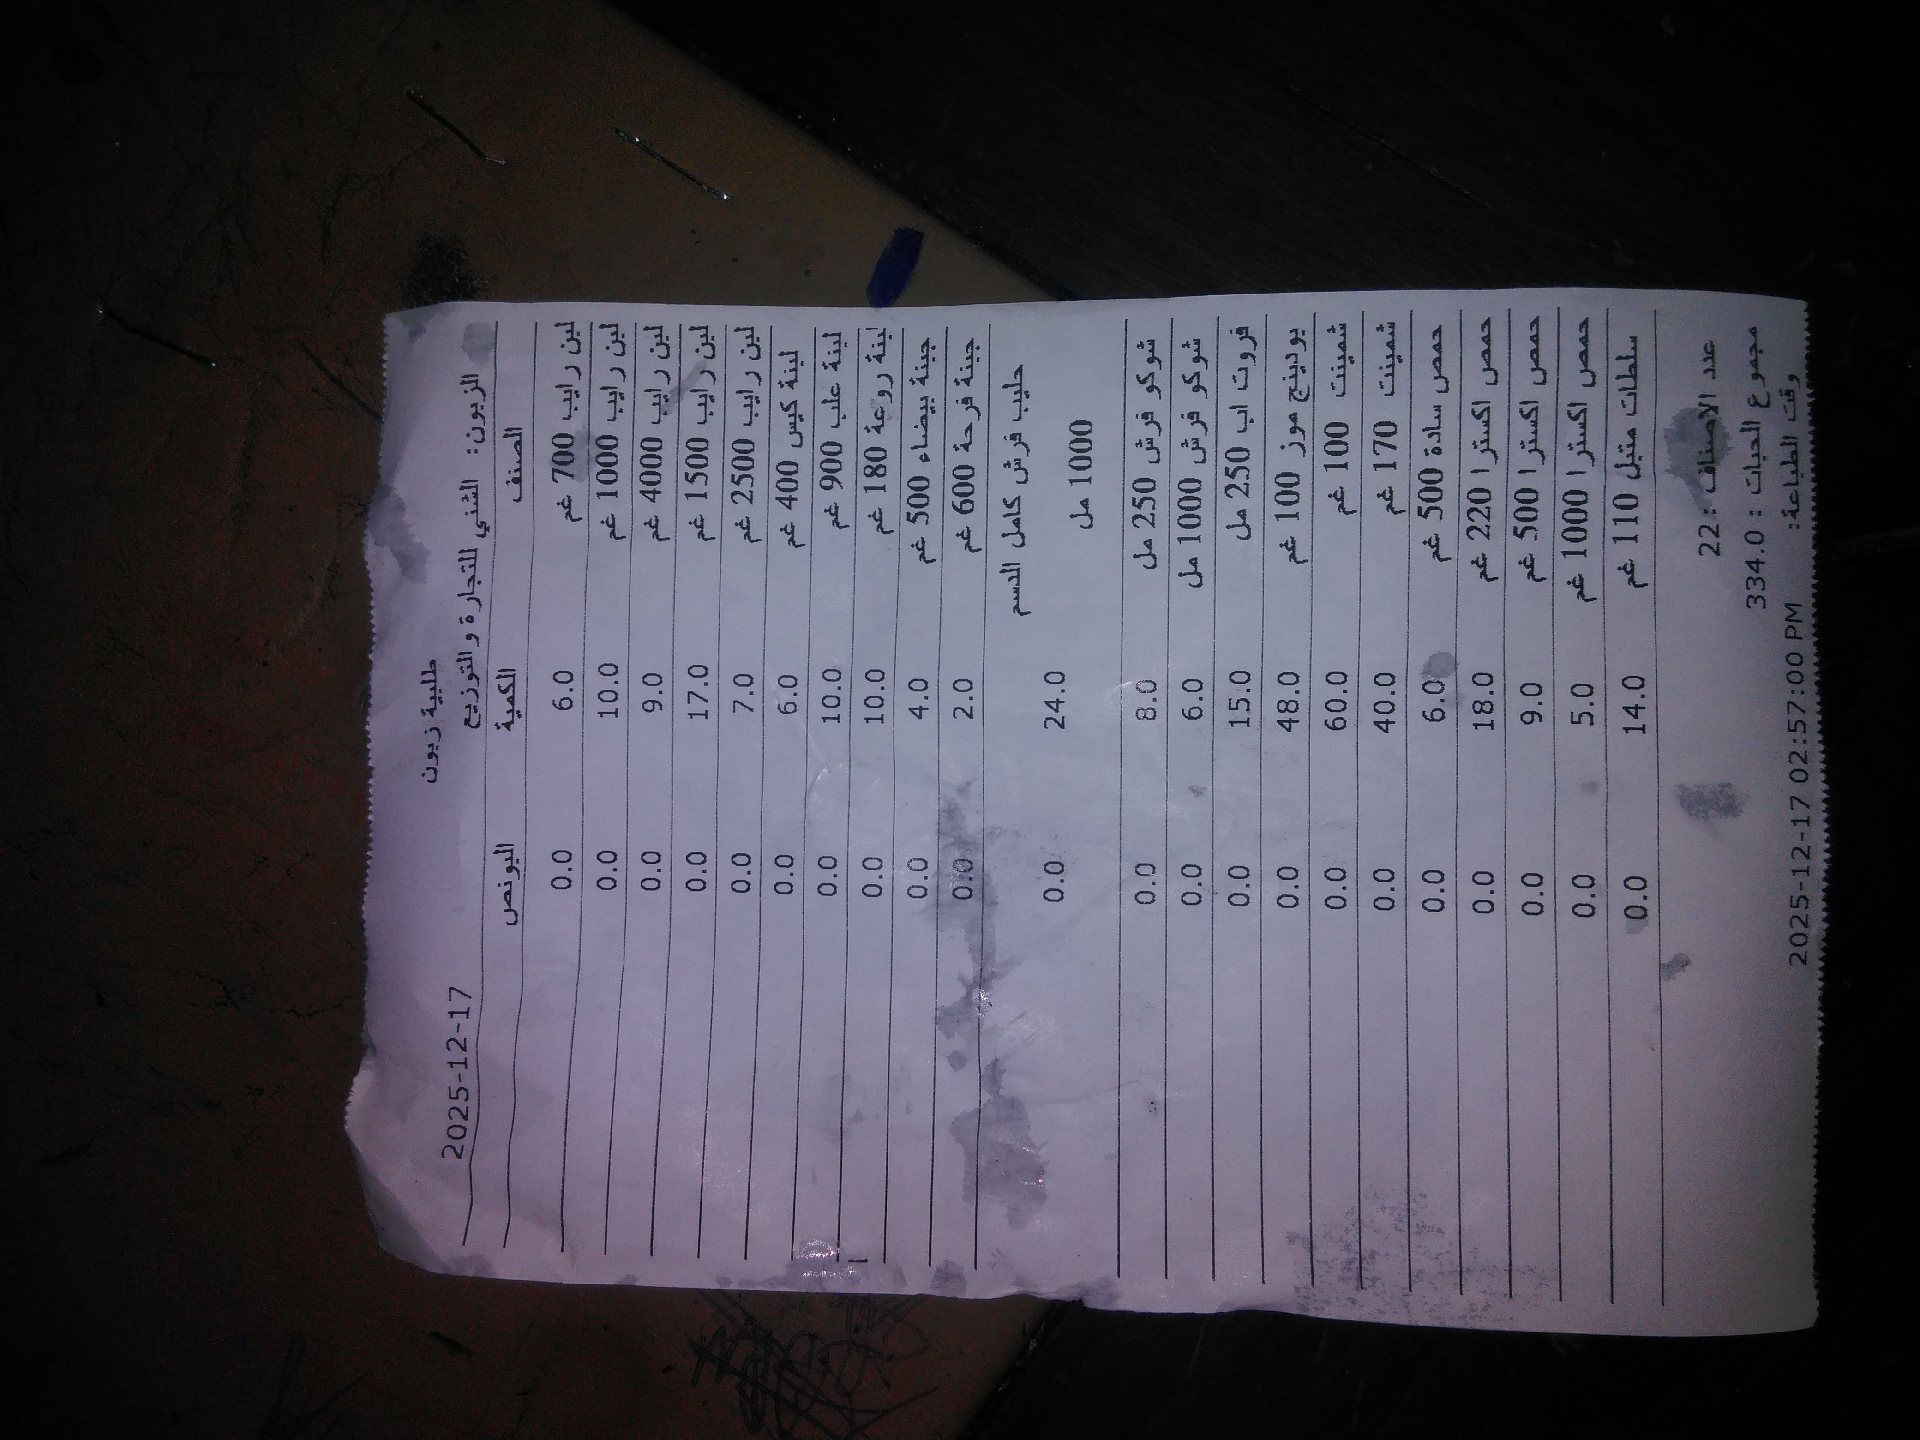 طلبية زبون
الزبون: الشني للتجارة و التوزيع 2025-12-17
الصنف الكمية البونص
لبن رايب 700 غم 6.0 0.0
لبن رايب 1000 غم 10.0 0.0
لبن رايب 4000 غم 9.0 0.0
لبن رايب 1500 غم 17.0 0.0
لبن رايب 2500 غم 7.0 0.0
لبنة كيس 400 غم 6.0 0.0
لبنة علب 900 غم 10.0 0.0
لبنة روعة 180 غم 10.0 0.0
جبنة بيضاء 500 غم 4.0 0.0
جبنة فرحة 600 غم 2.0 0.0
حليب فرش كامل الدسم
1000 مل 24.0 0.0
شوكو فرش 250 مل 8.0 0.0
شوكو فرش 1000 مل 6.0 0.0
فروت اب 250 مل 15.0 0.0
بودينج موز 100 غم 48.0 0.0
شمينت 100 غم 60.0 0.0
شمينت 170 غم 40.0 0.0
حمص سادة 500 غم 6.0 0.0
حمص اكسترا 220 غم 18.0 0.0
حمص اكسترا 500 غم 9.0 0.0
حمص اكسترا 1000 غم 5.0 0.0
سلطات متبل 110 غم 14.0 0.0
عدد الاصناف :22
مجموع الحبات : 334.0
وقت الطباعة: 2025-12-17 02:57:00 PM